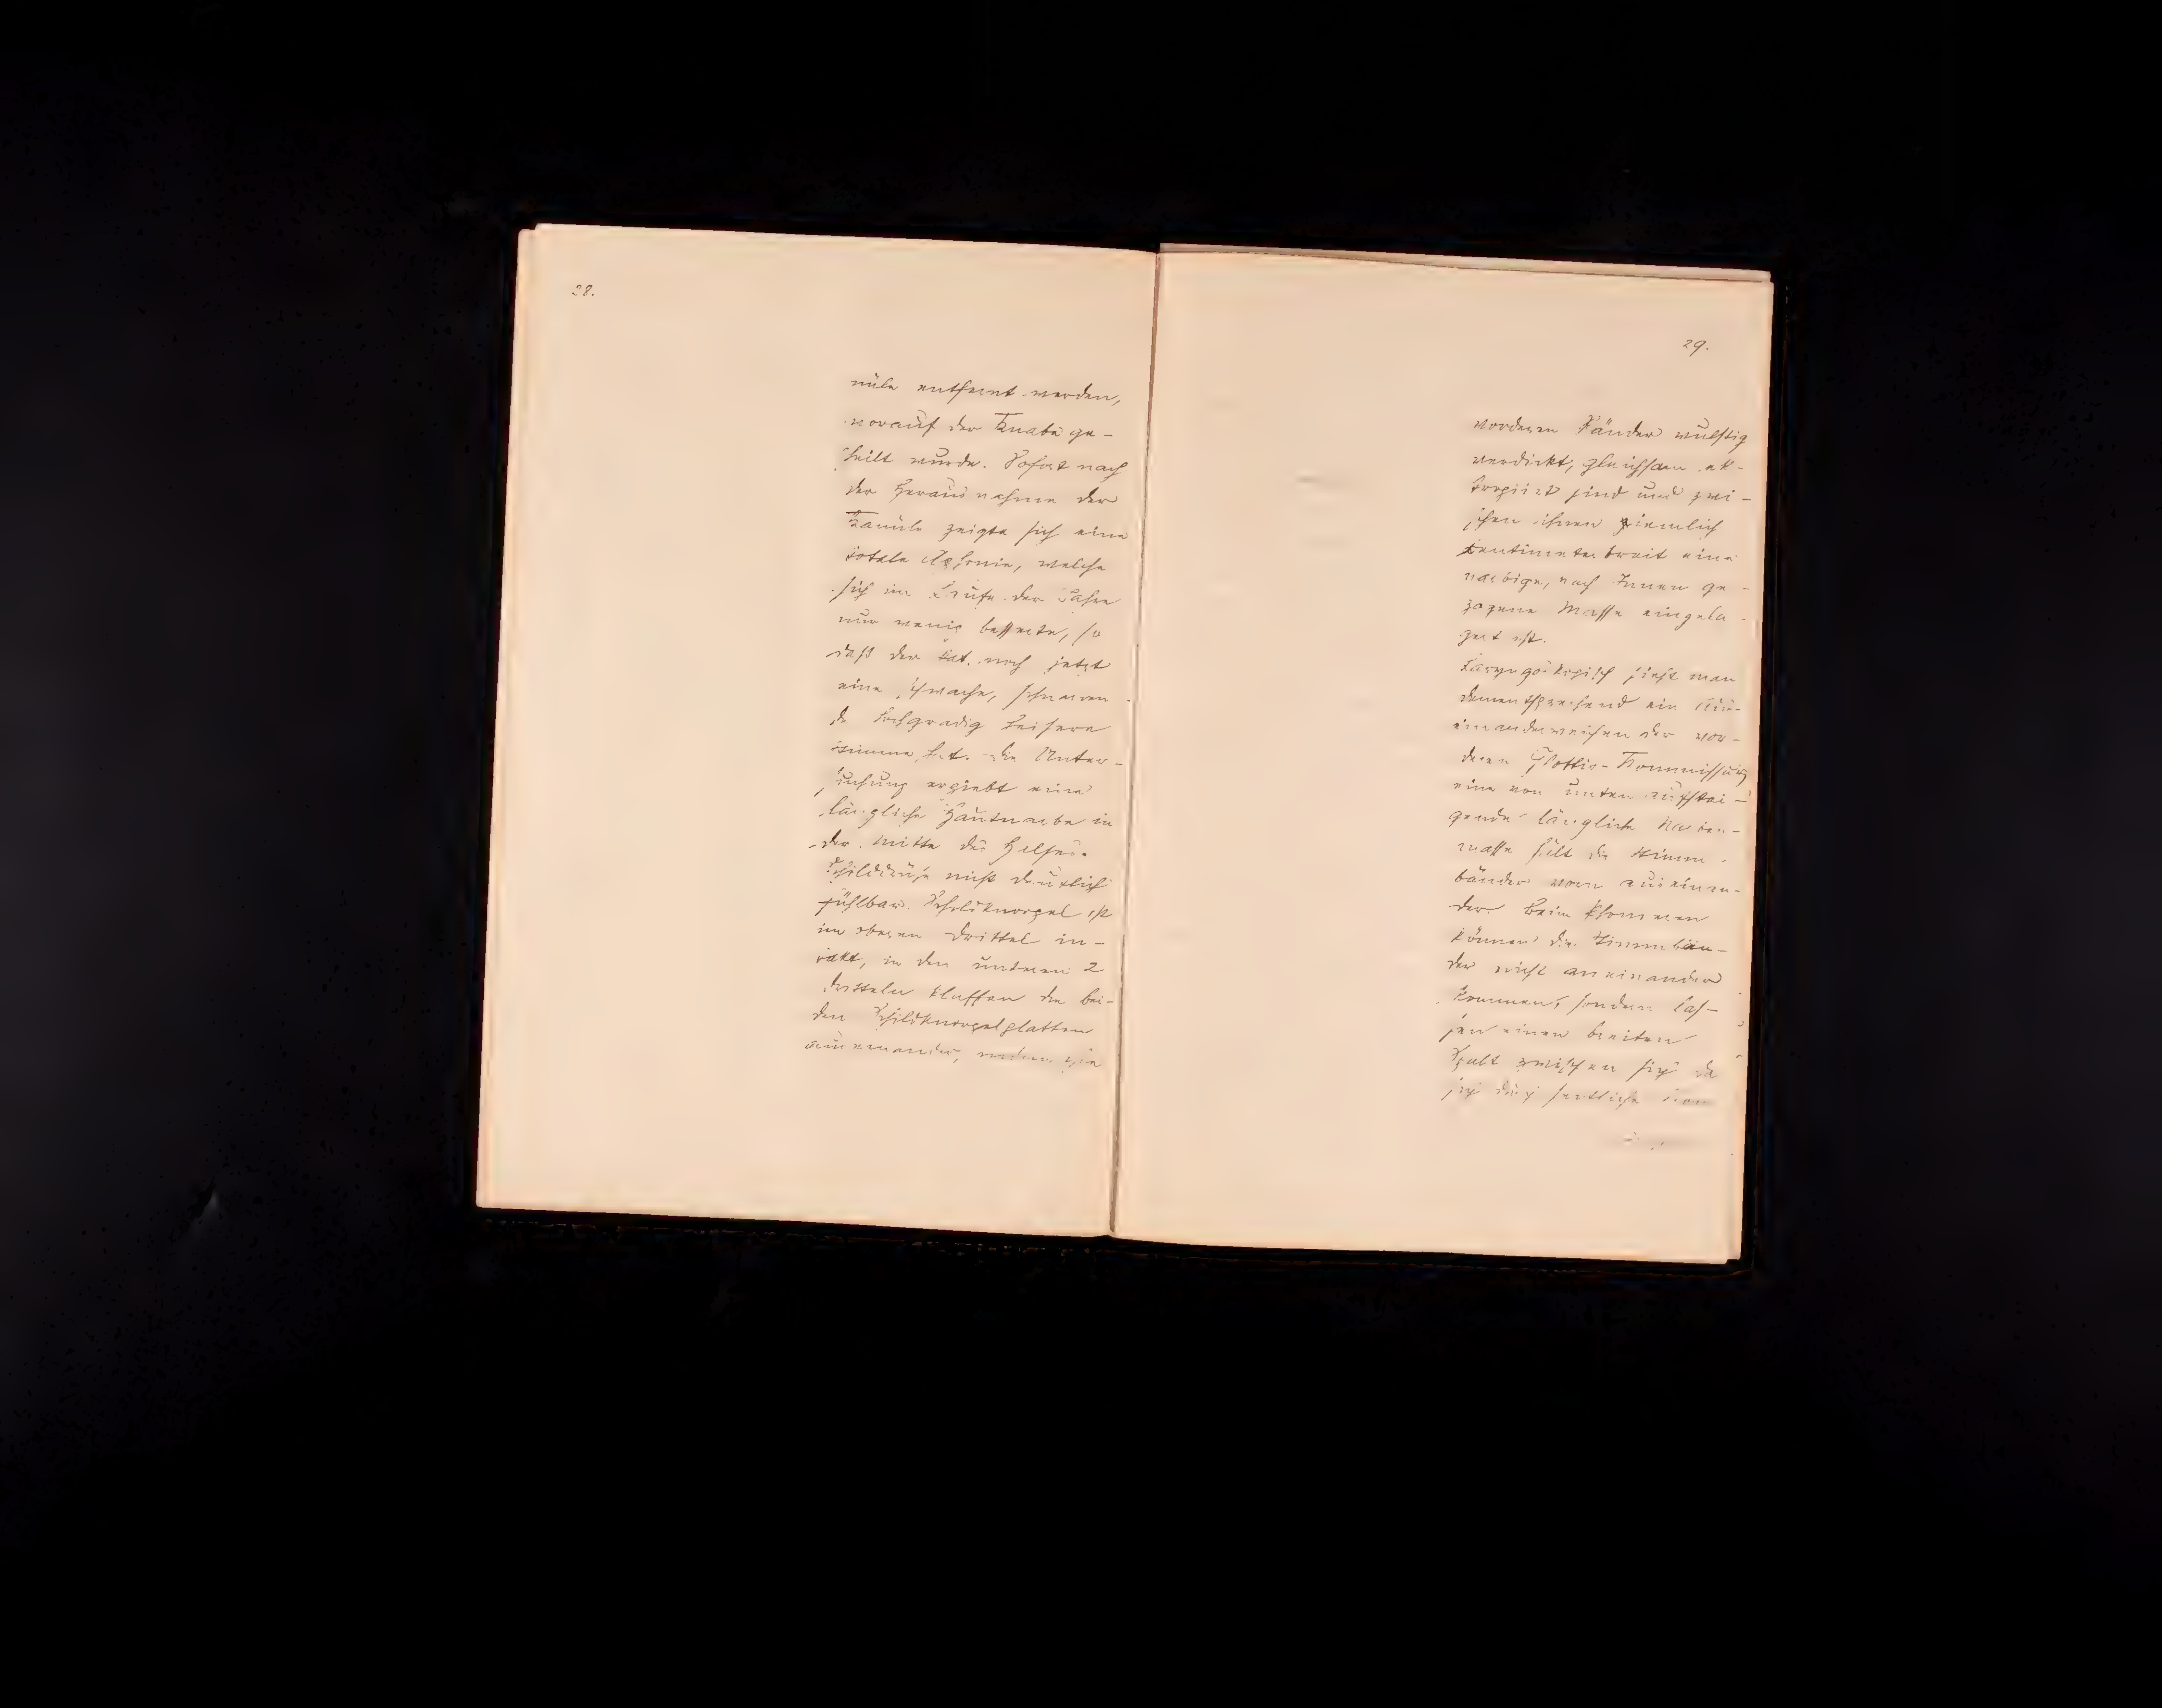 28.
nüle entfernt werden,
worauf der Knabe ge-
heilt wurde. Sofort nach
der Herausnahme der
Kanüle zeigte sich eine
totale Aphonie, welche
sich im Laufe der Jahre
nur wenig besserte, so
daß der Pat. noch jetzt
eine schwache, schnarren-
de hochgradig heisere
Stimme hat. Die Unter-
suchung ergiebt eine
längliche Hautnarbe in
der Mitte des Halses.
Schilddrüse nicht deutlich
fühlbar. Schildknorpel ist
im oberen Drittel in-
takt, in den unteren 2
Dritteln klaffen die bei-
den Schildknorpelplatten
auseinander, indem ihre
29.
vorderen Ränder wulstig
verdickt, gleichsam ek-
tropiirt sind und zwi-
schen ihnen ziemlich
centimeterbreit eine
narbige, nach Innen ge-
zogene Masse eingela-
gert ist.
Laryngoskopisch sieht man
dementsprechend ein Aus-
einanderweichen der vor-
deren Glottis-Kommissur,
eine von unten aufstei-
gende längliche Narben-
masse hält die Stimm-
bänder vorn auseinan-
der. Beim Phonieren
können die Stimmbän-
der nicht aneinander
kommen, sondern las-
sen einen breiten
Spalt zwischen sich, der
sich durch seitliche